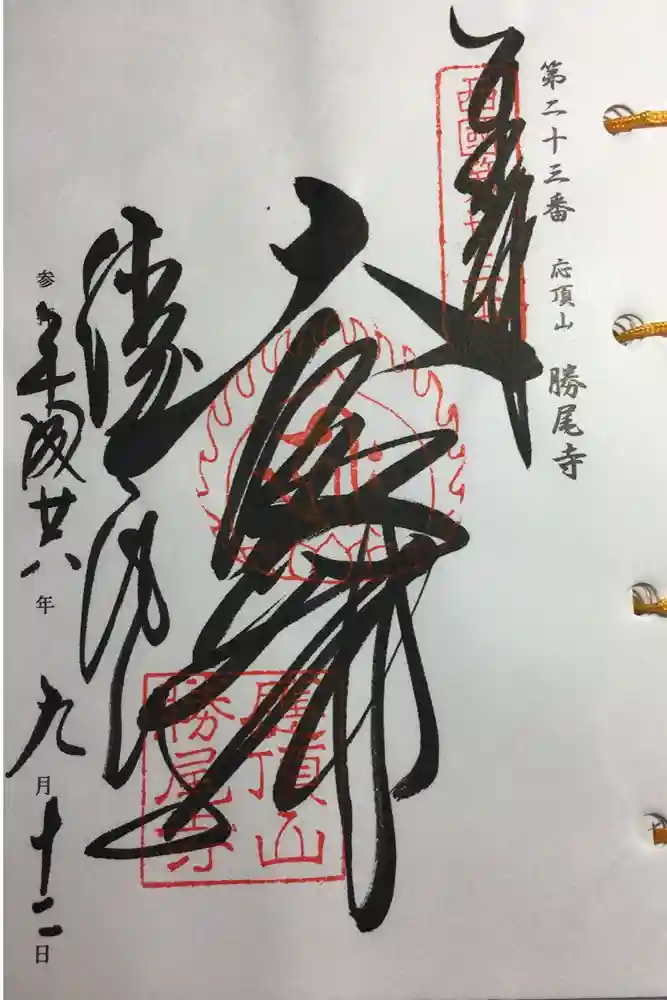 第二十三番 応頂山 勝尾寺
奉拝
西國第廿三番
大悲
應頂山
勝尾寺
勝尾寺
参 平成廿八年九月十二日